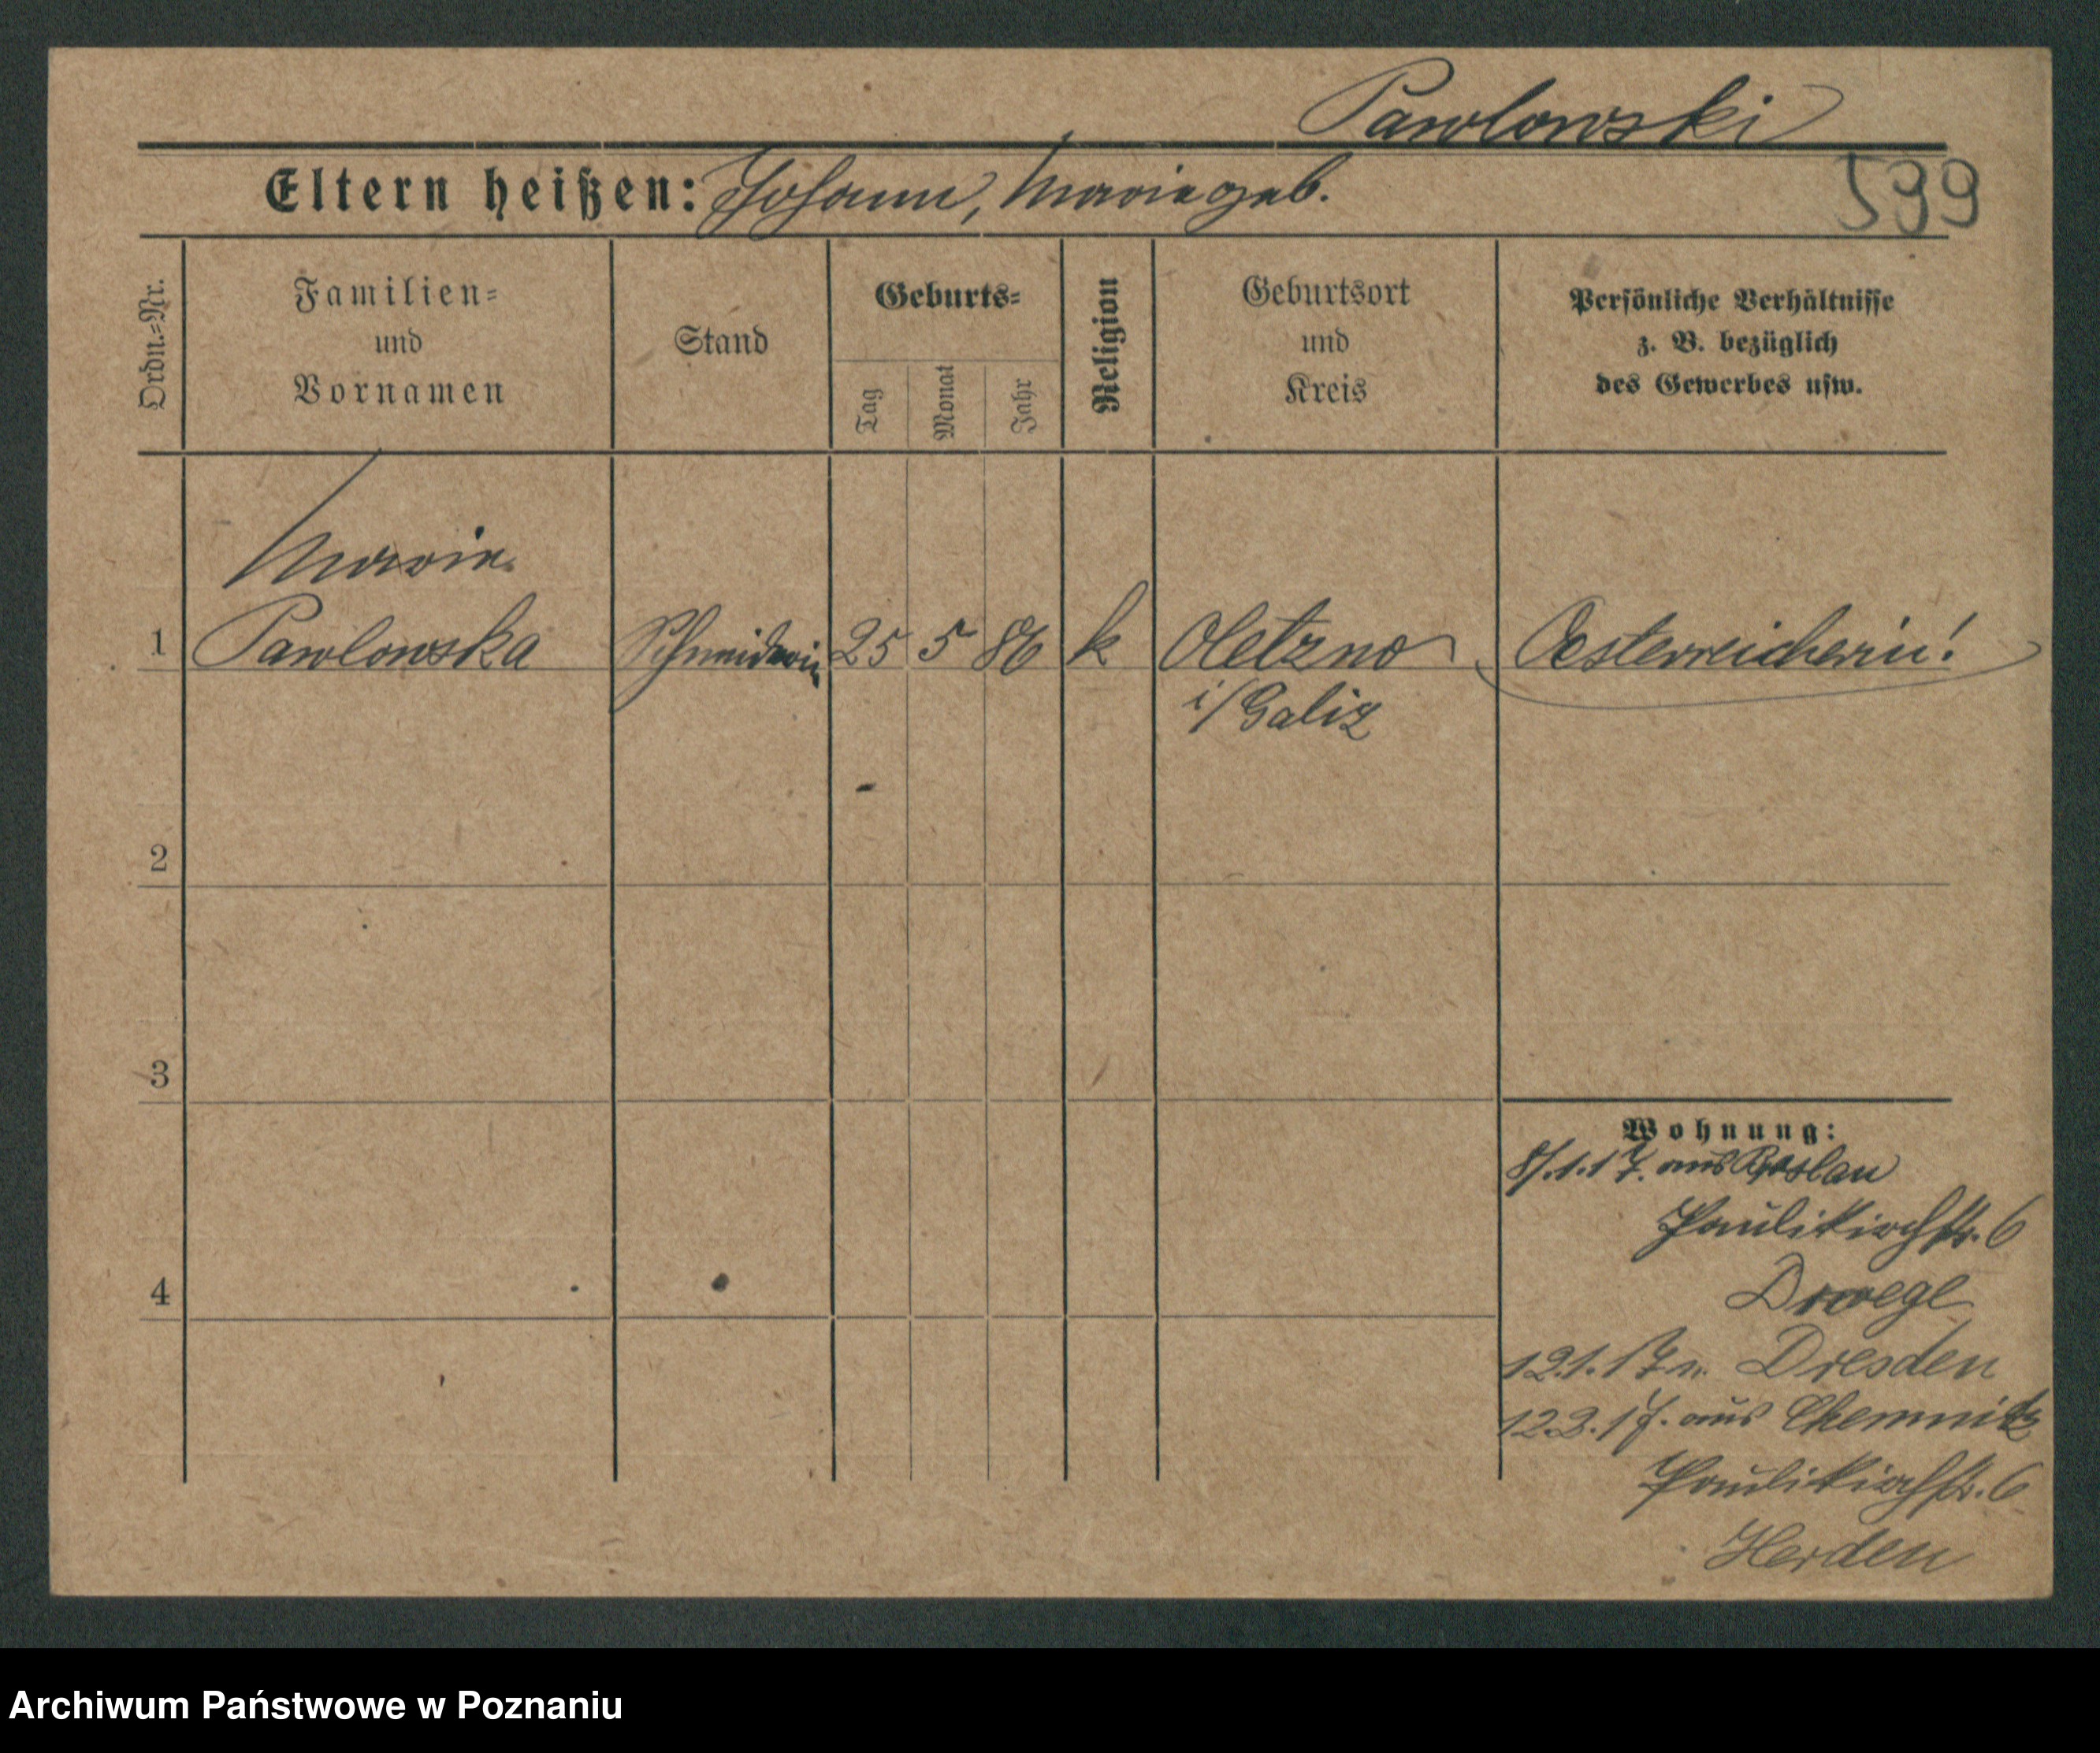 Pawlowski
Eltern heißen: Johann, Marie geb.
599
Ordn.=Nr.
Familien=
und
Vornamen
Stand
Geburts=
Tag
Monat
Jahr
Religion
Geburtsort
und
Kreis
Persönliche Verhältnisse
z. B. bezüglich
des Gewerbes usw.
Marie
1 Pawlowska Schneiderin 25 5 86 k Oletzno Oesterreicherin!
i/Galiz
2
3
4
Wohnung:
8/.1.17. aus
Paulikirchstr. 6
12.1.17 n. Dresden
12.2.17. aus Chemnitz
Paulikirchstr. 6
Herden
Archiwum Państwowe w Poznaniu